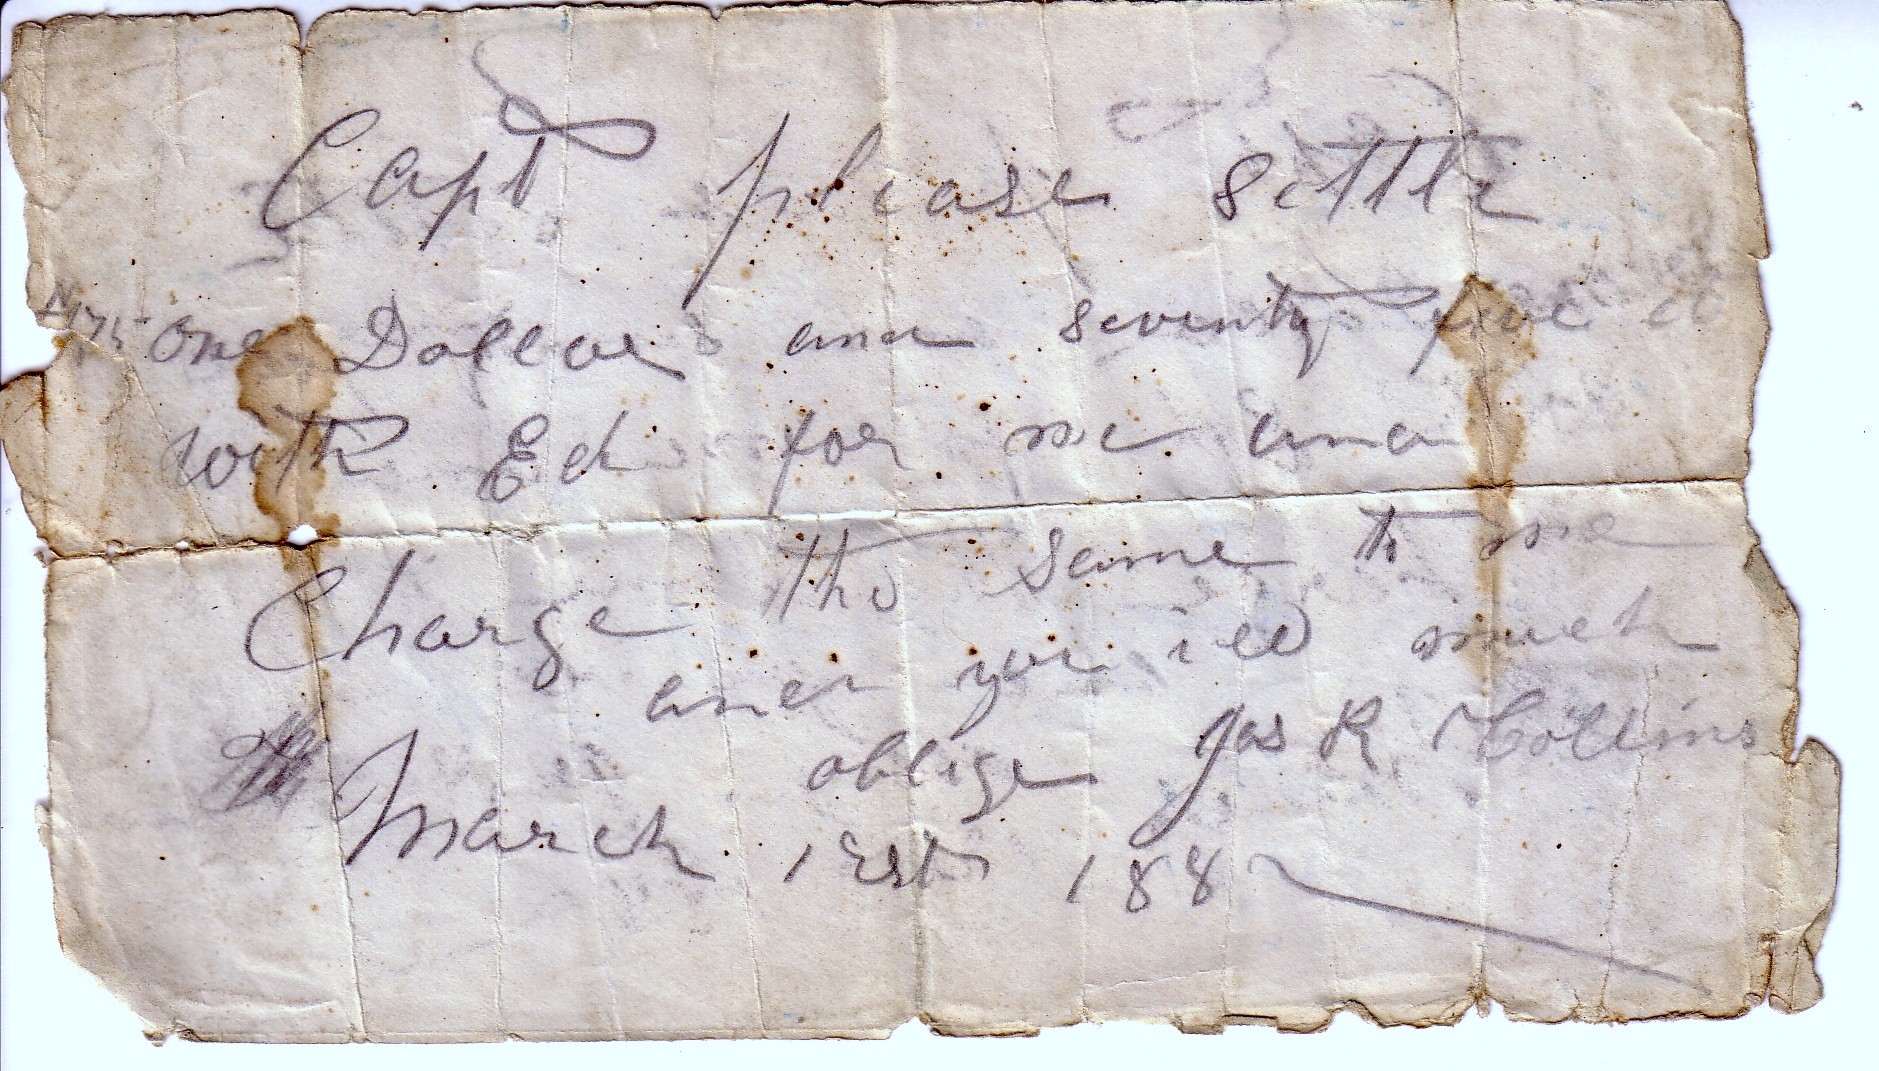 Capt please settle
175 one Dollar and seventy five ct
with Ed for me and
Charge the same to me
and you ill much
oblige Jas R Collins
March 1est 188